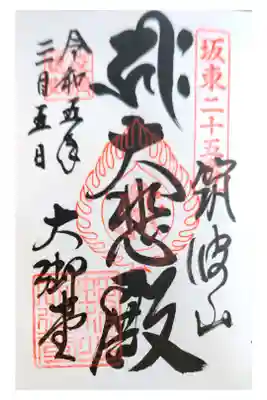 坂東二十五
筑波山
大悲殿
大御堂
令和五年
三月五日